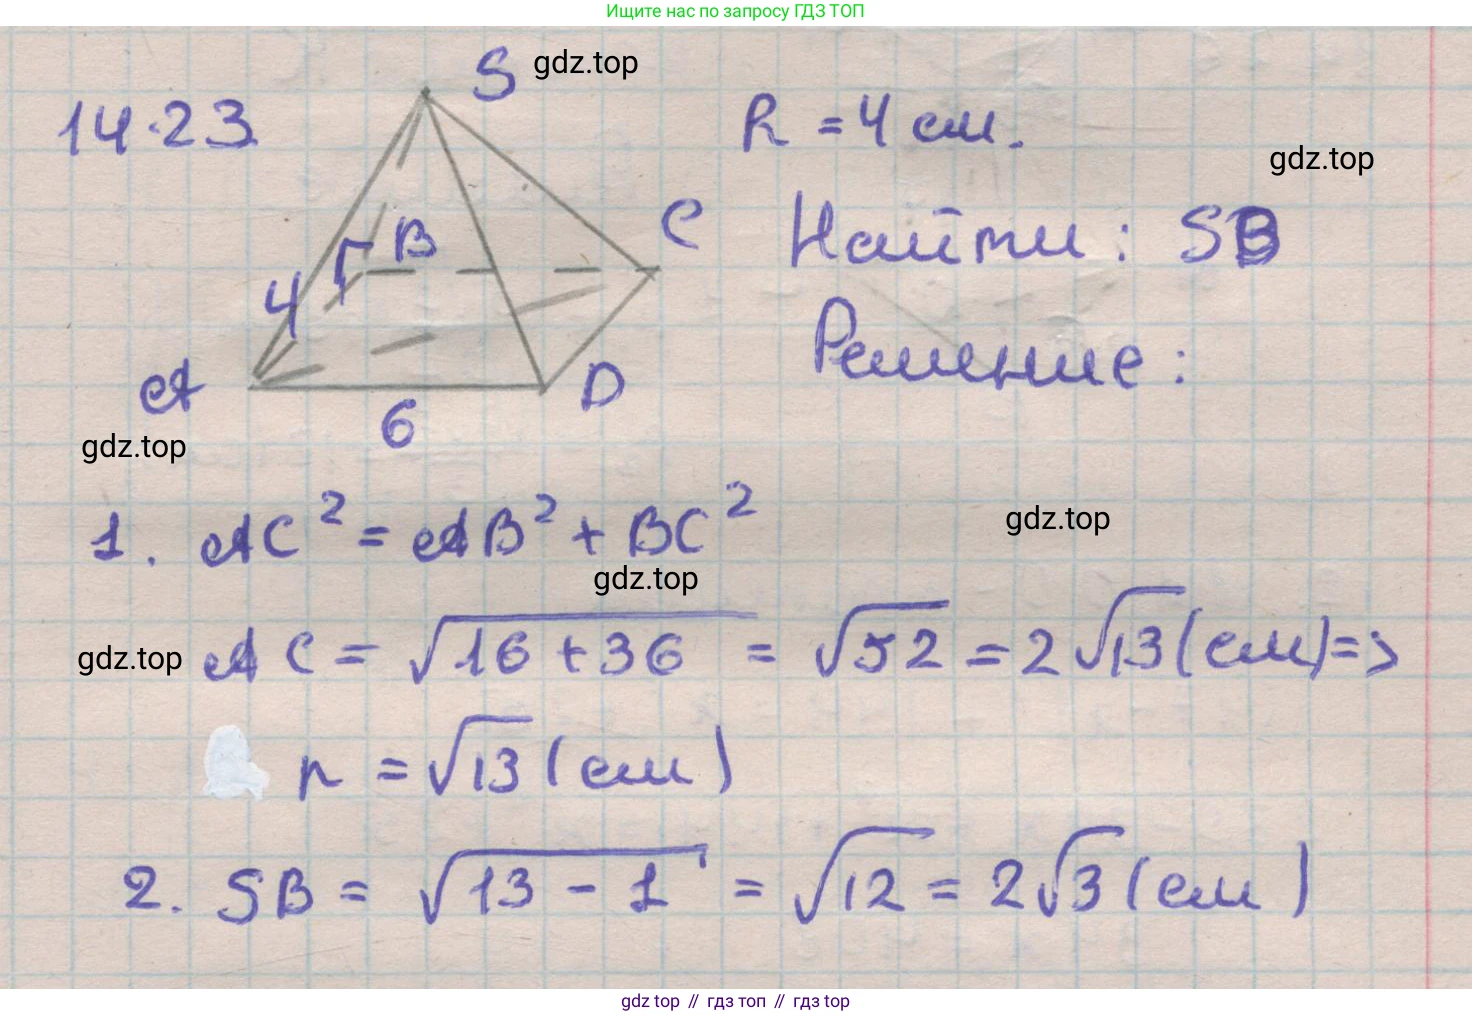 Ищите нас по запросу ГДЗ ТОП
S gdz.top
14.23
R = 4 см.
gdz.top
B
C
Найти: SB
4
Решение:
A
D
6
gdz.top
1. AC² = AB² + BC²
gdz.top
gdz.top
gdz.top
AC = √16 + 36 = √52 = 2√13 (см) =>
r = √13 (см)
2. SB = √13 - 1 = √12 = 2√3 (см)
gdz top // гдз топ // гдз top